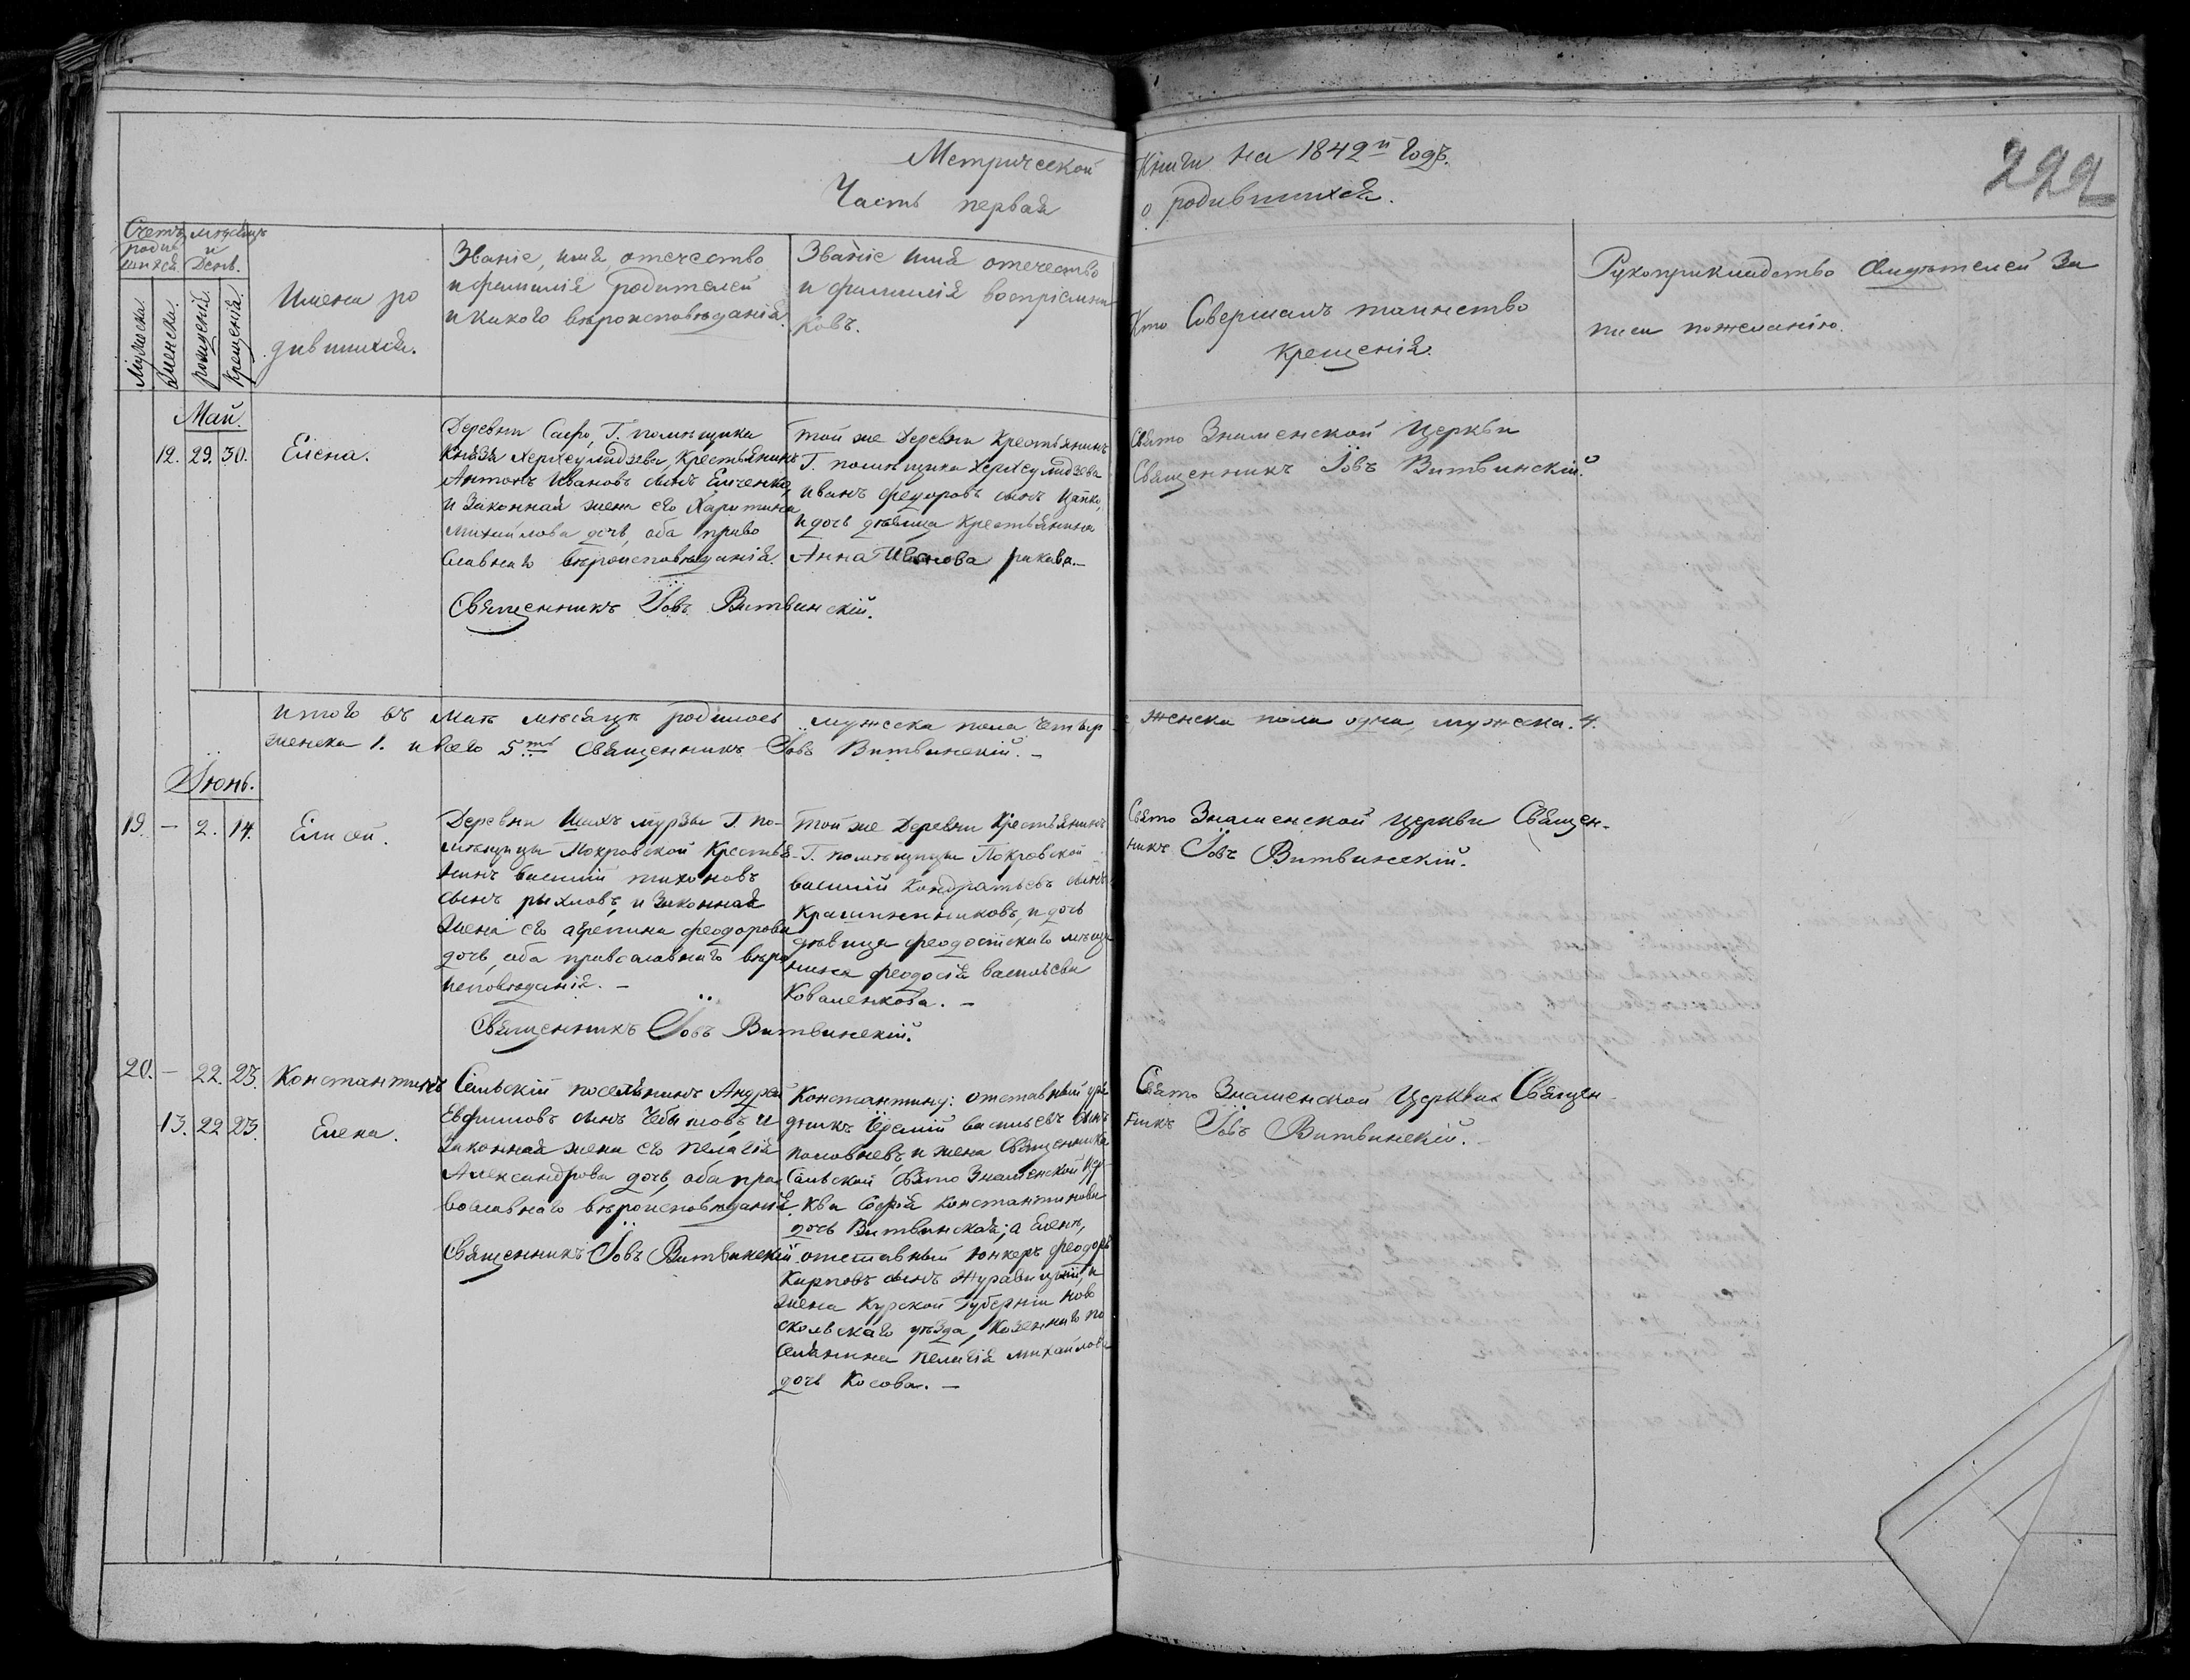 Метрической
Часть первая
Книги на 1842й годъ.
о родившихся.
222
Счетъ родив шихся.
мѣсяцъ и День.
Мужеска.
Женска.
рожденія.
Крещенія.
Имена ро
дившихся.
Званіе, имя, отечество
и фамилія родителей
и какого вѣроисповѣданія.
Званіе имя отечество
и фамилія воспріемни
ковъ.
Кто Совершалъ таинство
Крещенія.
Рукоприкладство Свидѣтелей За
писи пожеланію.
Май.
12. 29. 30.
Елена.
Деревни Г. помѣщика
Князя Херхеулидзева, Крестьянинъ
Антонъ Ивановъ сынъ Ельченко,
и Законная жена его Харитина
Михайлова дочь, оба право
славнаго вѣроисповѣданія.
Священникъ Іовъ Витвинскій.
той же Деревни Крестьянинъ
Г. помѣщика Херхеулидзева
иванъ федоровъ сынъ Цапко,
и дочь дѣвица Крестьянина
Анна Иванова ракова.—
Свято Знаменской Церкви
Священникъ Іовъ Витвинскій.
итого въ Маѣ мѣсяцѣ родилось мужеска пола четыр
е женска пола одна, мужеска. 4.
женска 1. и всего 5ть Священникъ Іовъ Витвинскій.—
Іюнь.
19. — 2. 14.
Елисей.
Деревни Шихъ мурзы Г. по-
мѣщицы Покровской Крестья-
нинъ василій тихоновъ
сынъ рыхловъ, и Законная
жена его агрепина феодорова
дочь, оба православнаго вѣро
исповѣданія.—
Священникъ Іовъ Витвинскій.
той же Деревни Крестьянинъ
Г. помѣщицы Покровской
василій Кондратьевъ сынъ
Крашининиковъ, и дочь
дѣвица феодосійскаго мѣща
нина феодосія васильева
Коваленкова.—
Свято Знаменской Церкви Священ-
никъ Іовъ Витвинскій.
20. — 22. 23.
Константинъ
13. 22 23.
Елена.
Сельскій поселянинъ Андрей
Евфимовъ сынъ Чебышовъ, и
Законная жена его пелагія
Александрова дочь, оба пра
вославнаго вѣроисповѣданія.
Священникъ Іовъ Витвинскій.
Константину: отставный уря
дникъ васильевъ сынъ
половневъ, и жена Священника
Сельской Свято Знаменской Цер
кви Софія Константинова
дочь Витвинская; а Еленѣ,
отставный юнкеръ феодоръ
Карповъ сынъ Журавицкій, и
жена Курской Губерніи Ново
скольскаго уѣзда, Козеннаго по
селянина пелагія Михайлова
дочь Косова.—
Свято Знаменской Церкви Священ-
никъ Іовъ Витвинскій.—